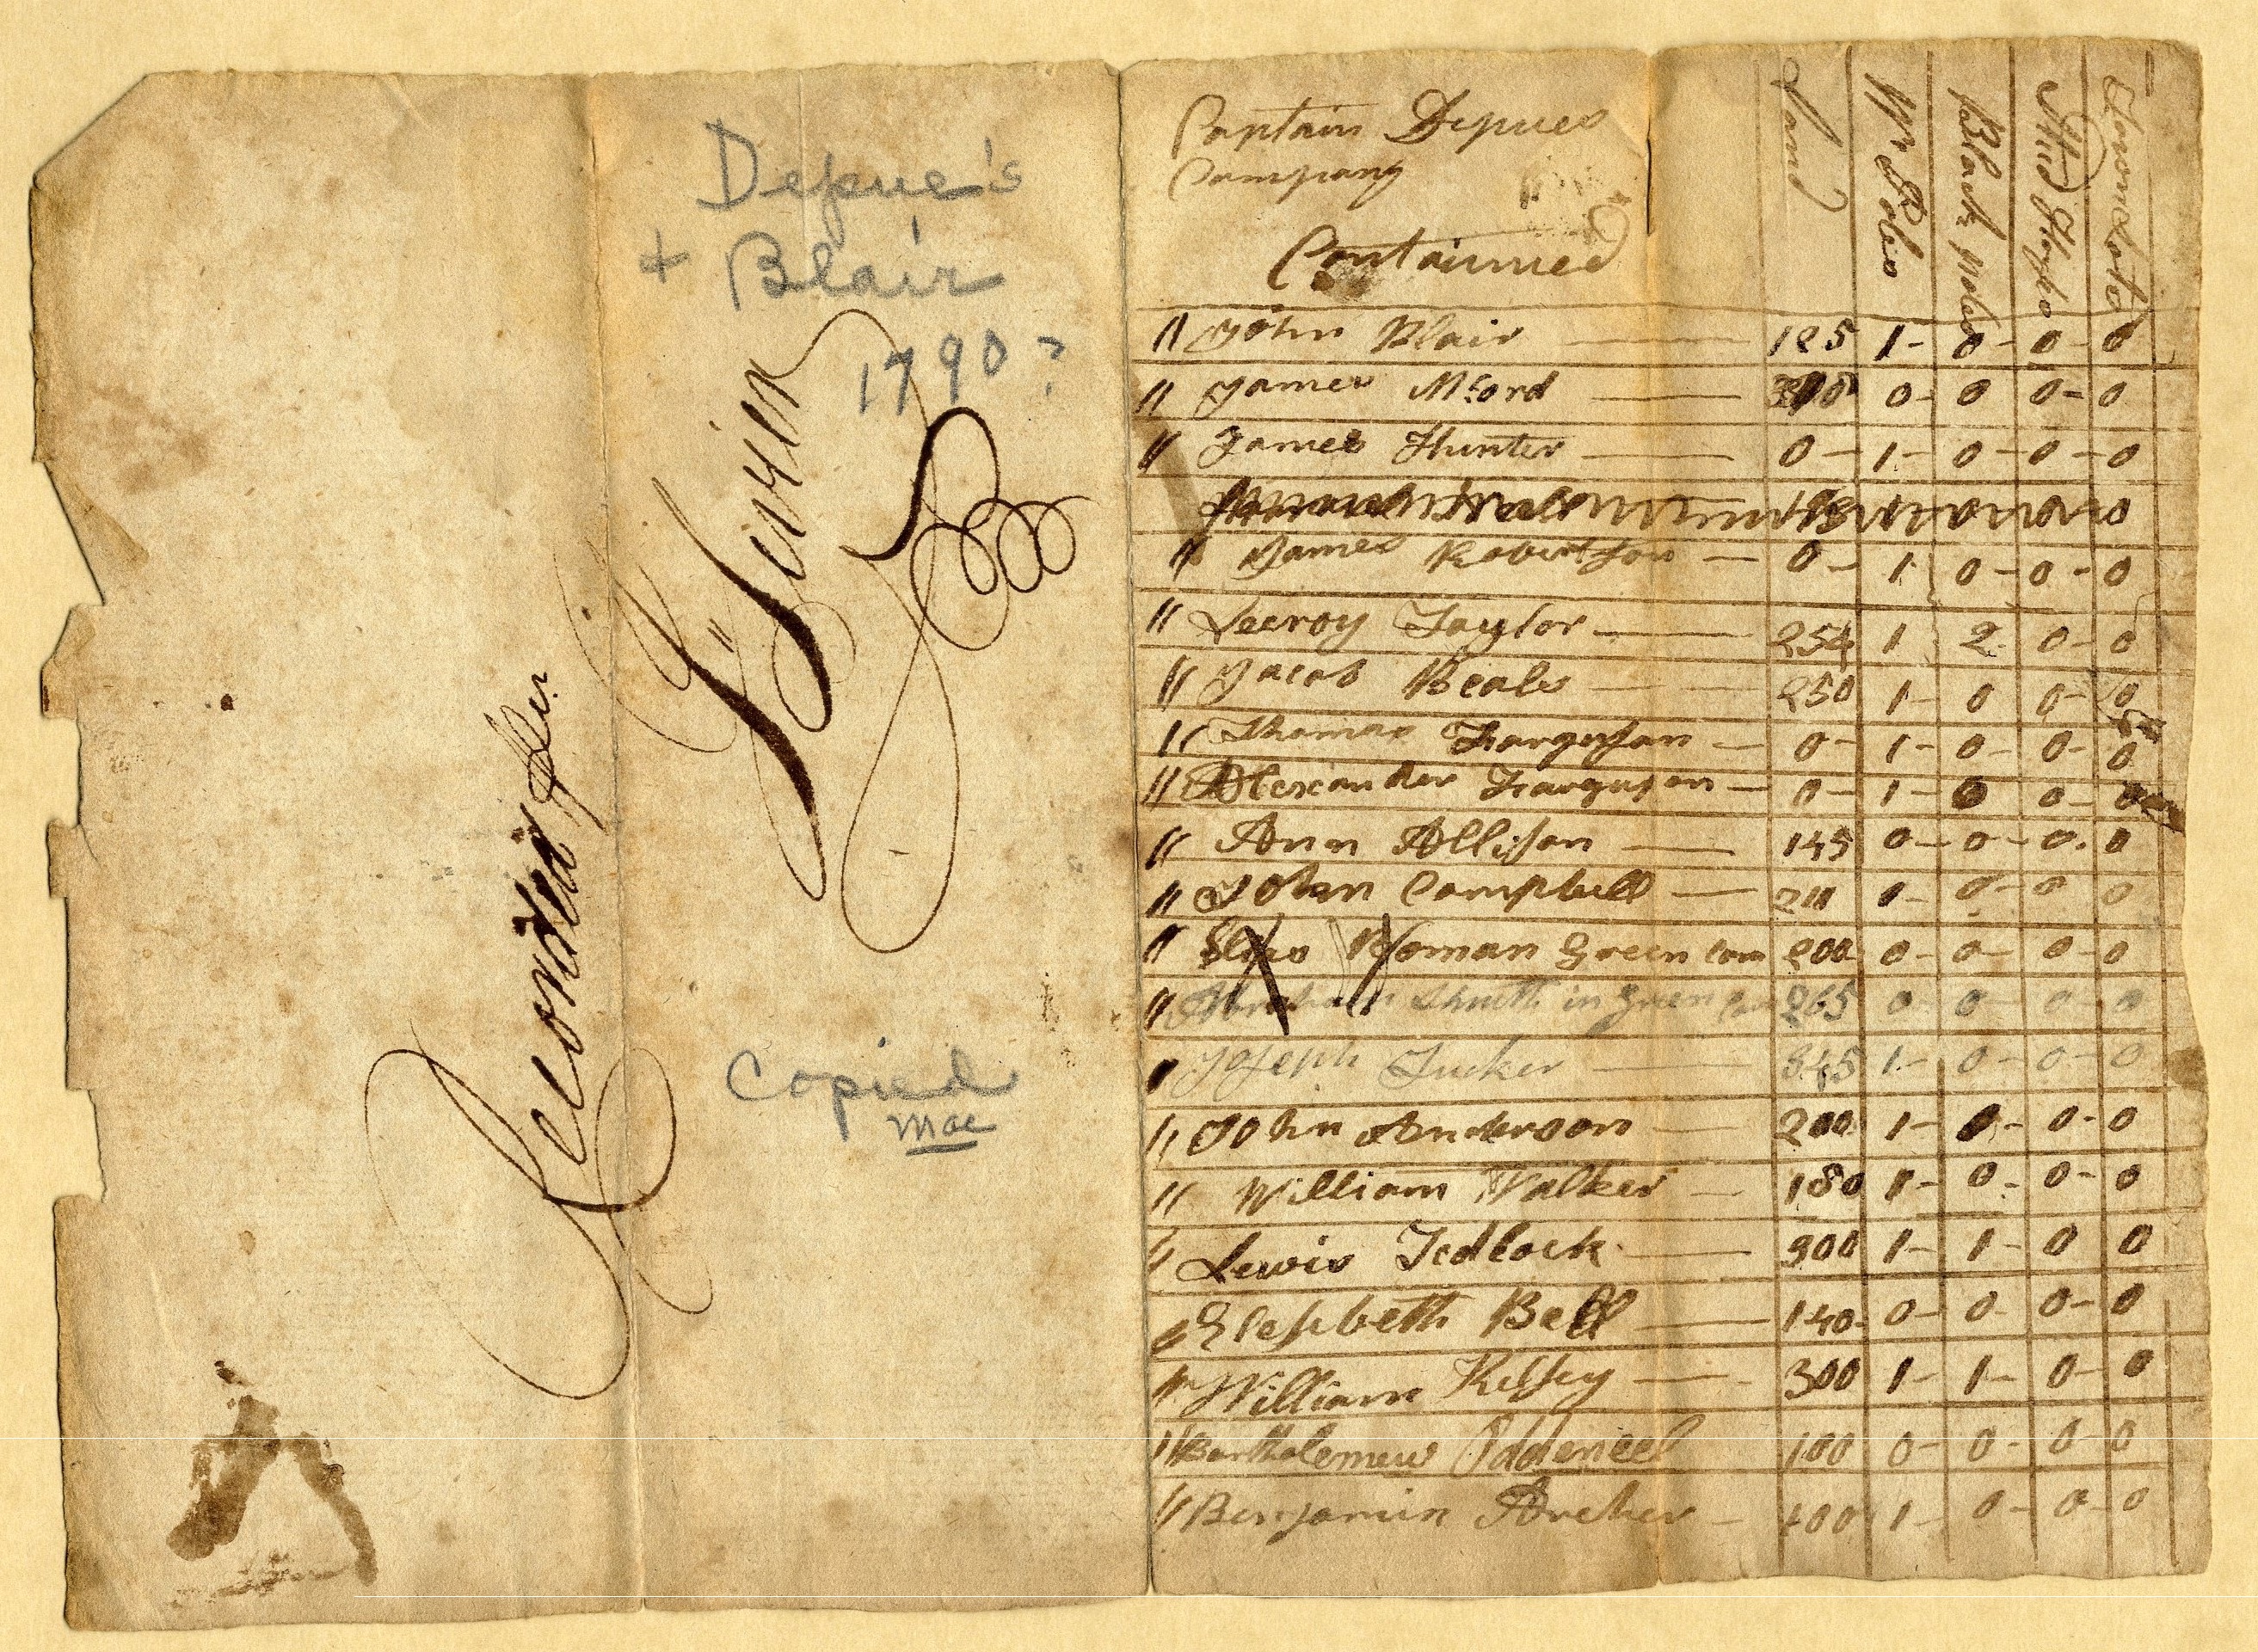 Depue's
+ Blair
1790 ?
Recorded
Copied
mae
Captain Depues
Company
Continued
Land
W Poles
Black Poles
Stud
Town Lots
" John Blair 125 1- 0- 0- 0
" James McCord 0- 0 0- 0
" James Hunter 0- 1- 0- 0- 0
" James Robertson 0- 1 0- 0- 0
" Leeroy Taylor 254 1 2 0- 0
" Jacob Beals 250 1- 0 0- 0
" Thomas Farguson 0- 1- 0- 0- 0
" Alexander Farguson 0- 1- 0 0- 0
" Ann Allison 145 0- 0- 0- 0
" John Campbell 211 1- 0- 0 0
" Woman Green Coun 200 0- 0- 0- 0
" Abraham Smith in Green 265 0- 0- 0- 0
" Joseph Tucker 345 1- 0- 0- 0
" John Anderson 200 1- 0- 0- 0
" William Walker 180 1- 0- 0- 0
" Lewis Tedlock 900 1- 1- 0 0
" Elesibeth Bell 140- 0- 0- 0- 0
" William Kelsey 300 1- 1- 0- 0
" Bartholemew Odaneel 100 0- 0- 0- 0
" Benjamin Archer 400 1- 0- 0- 0